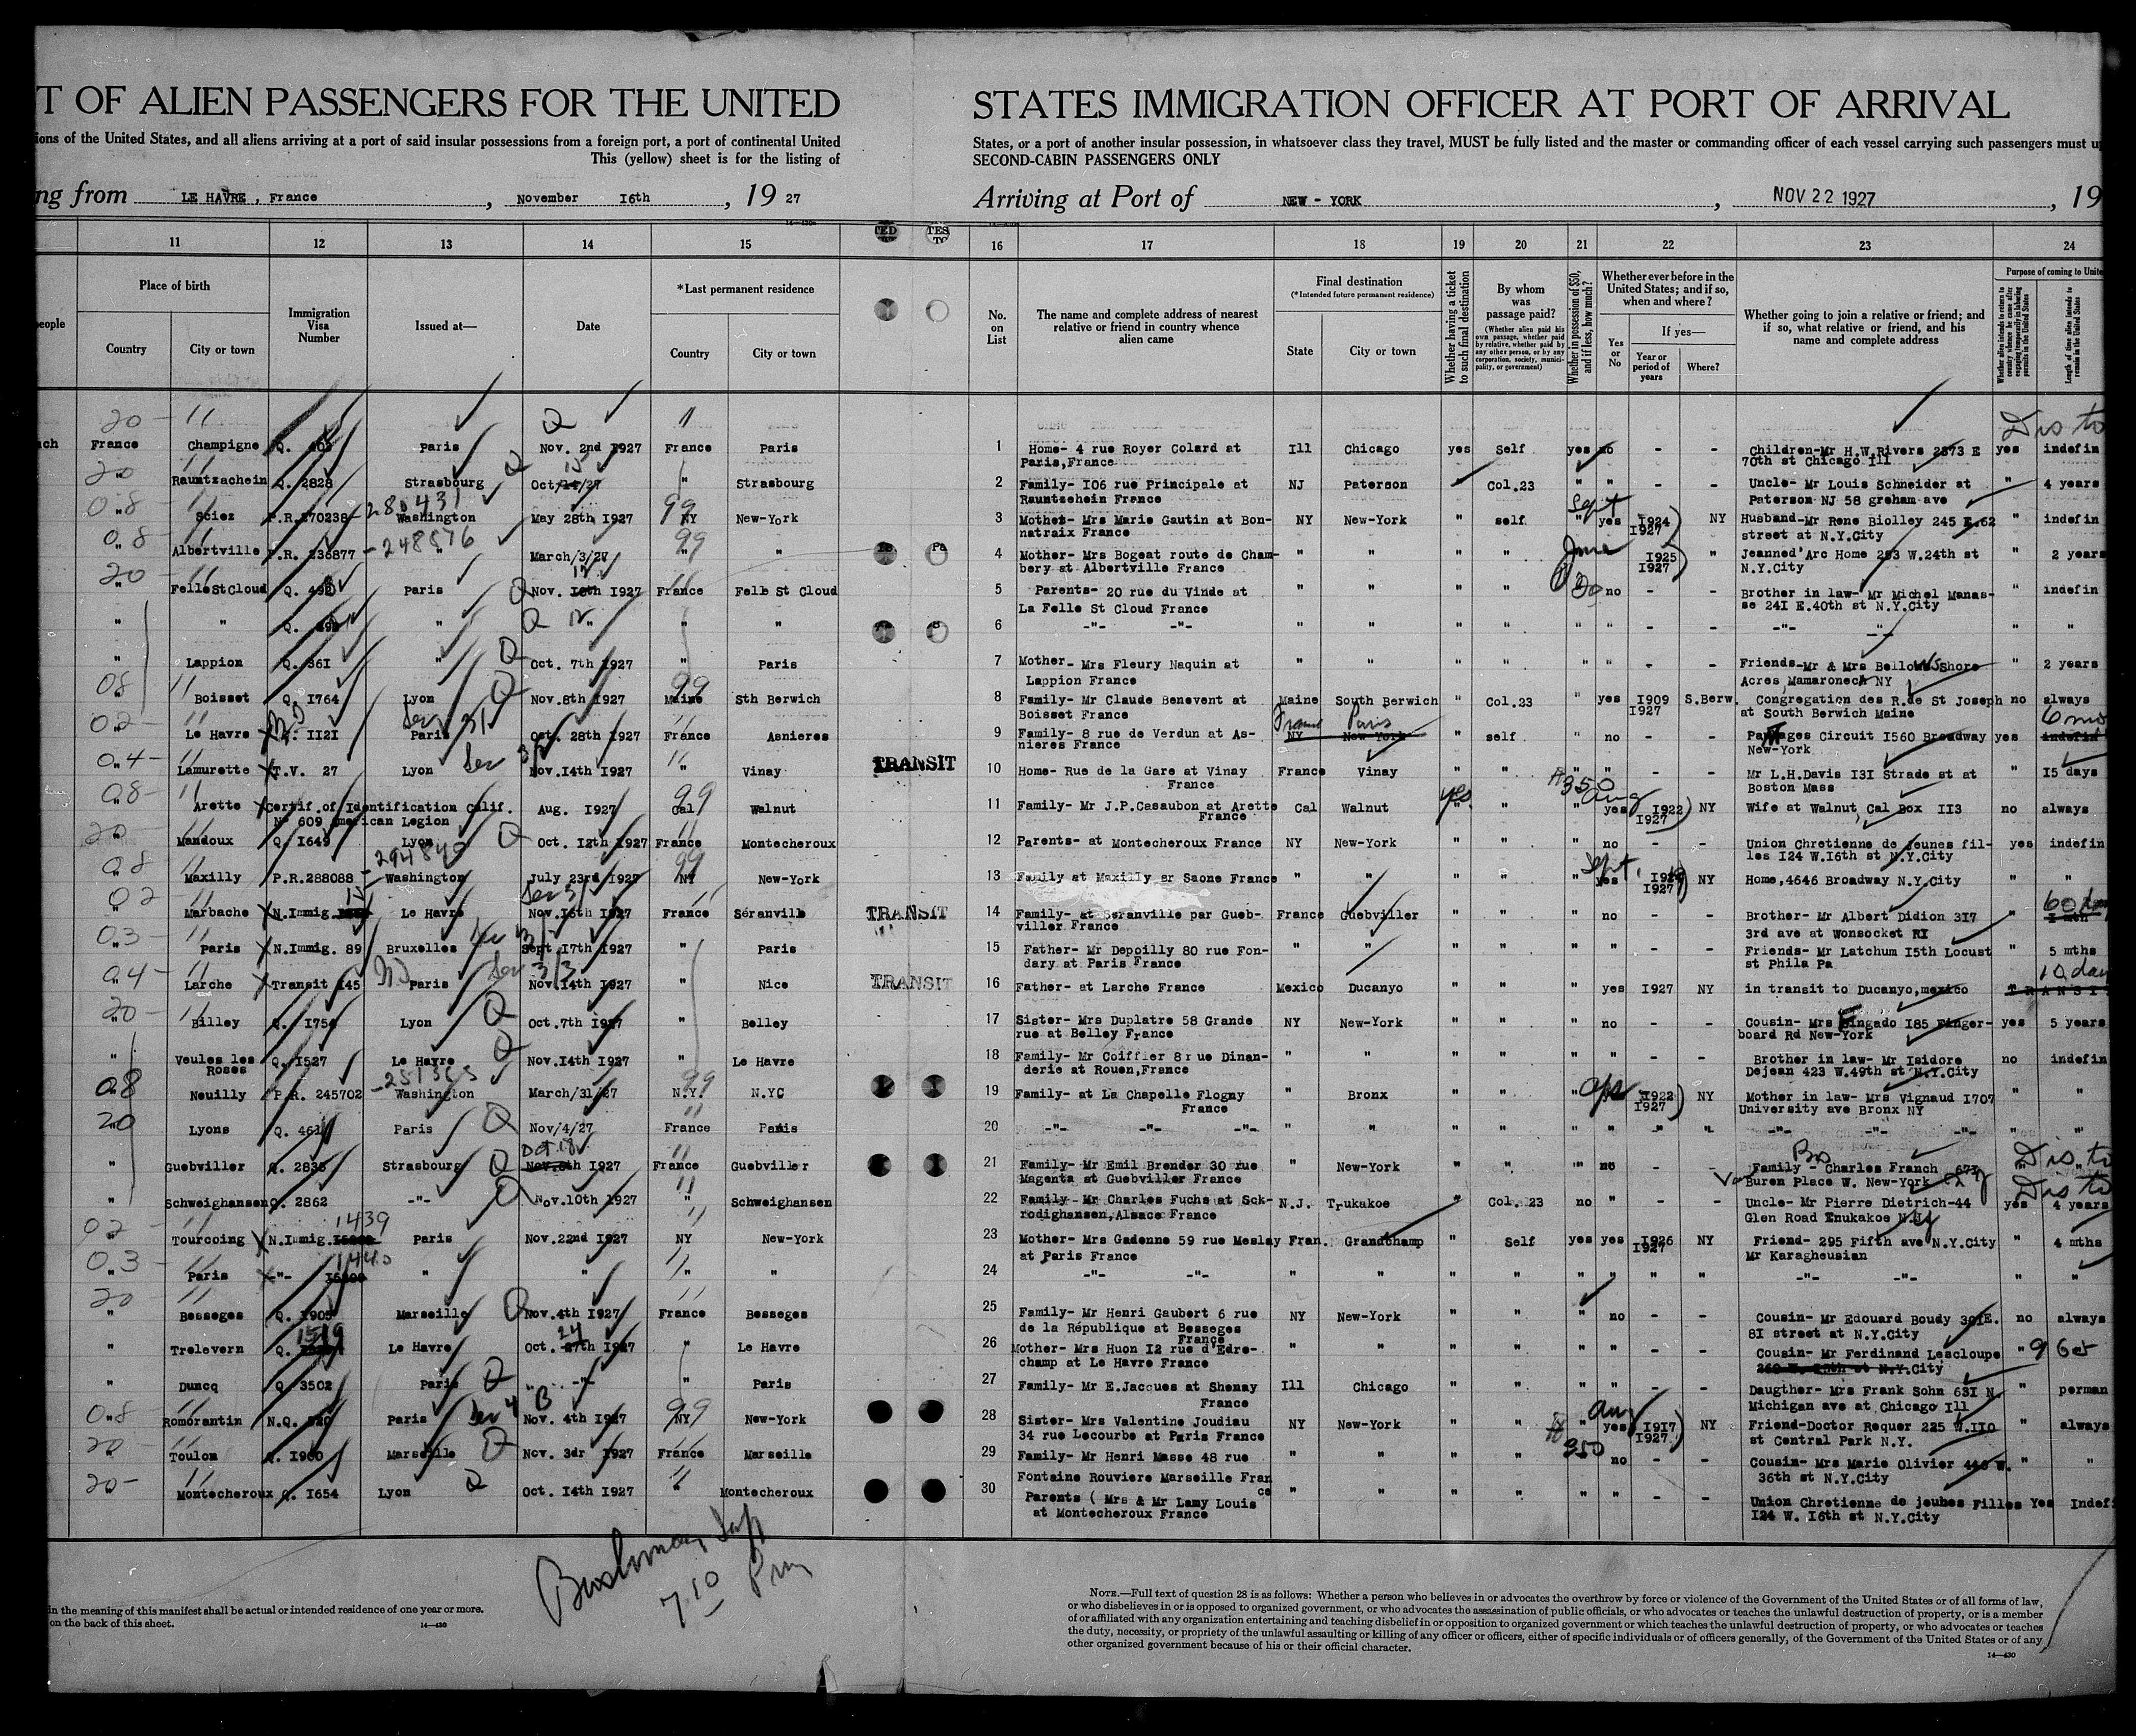 T OF ALIEN PASSENGERS FOR THE UNITED
STATES IMMIGRATION OFFICER AT PORT OF ARRIVAL
ions of the United States, and all aliens arriving at a port of said insular possessions from a foreign port, a port of continental United
States, or a port of another insular possession, in whatsoever class they travel, MUST be fully listed and the master or commanding officer of each vessel carrying such passengers must u
This (yellow) sheet is for the listing of
SECOND-CABIN PASSENGERS ONLY
ng from LE HAVRE, France, November 16th, 19 27
Arriving at Port of NEW - YORK, NOV 22 1927, 19
11 12 13 14 15 16 17 18 19 20 21 22 23 24
Place of birth
Country
City or town
Immigration Visa Number
Issued at—
Date
*Last permanent residence
Country
City or town
No. on List
The name and complete address of nearest relative or friend in country whence alien came
Final destination
(*Intended future permanent residence)
State
City or town
Whether having a ticket to such final destination
By whom was passage paid?
(Whether alien paid his own passage, whether paid by relative, whether paid by any other person, or by any corporation, society, municipality, or government)
Whether in possession of $50, and if less, how much?
Whether ever before in the United States; and if so, when and where?
Yes or No
If yes—
Year or period of years
Where?
Whether going to join a relative or friend; and if so, what relative or friend, and his name and complete address
Purpose of coming to Unite
Length of time alien intends to remain in the United States
France Champigne Q. 402 Paris Nov. 2nd 1927 France Paris 1 Home- 4 rue Royer Colard at Ill Chicago yes Self yes no - - Children-Mr H.W.Rivers 2873 E yes indefin
Paris,France 70th st Chicago Ill
" Rauntzachein Q. 2828 Strasbourg Oct/ /27 " Strasbourg 2 Family- 106 rue Principale at NJ Paterson Col.23 " " - - Uncle- Mr Louis Schneider at " 4 years
Rauntzehein France Paterson NJ 58 greham ave
" Sciez P.R.270238 - 280431 Washington May 28th 1927 NY New-York 3 Mother- Mrs Marie Gautin at Bon- NY New-York " self " yes 1924 1927 NY Husband-Mr Rene Biolley 245 E.62 " indefin
natraix France street at N.Y.City
" Albertville P.R. 236877 - 248576 " March/3/27 " " 4 Mother- Mrs Bogeat route de Cham- " " " " 1925 1927 " Jeanned'Arc Home 253 W.24th st " 2 years
bery at Albertville France N.Y.City
" FelleStCloud Q. 492 Paris Nov. 1927 France Felle St Cloud 5 Parents- 20 rue du Vinde at " " " " no - - Brother in law- Mr Michel Manas- " indefin
La Felle St Cloud France se 241 E.40th st N.Y.City
" " Q. " " " " 6 -"- -"- " " " " " " - - -"- -"- " "
" Lappion Q. 361 " Oct. 7th 1927 " Paris 7 Mother- Mrs Fleury Naquin at " " " " " " - - Friends-Mr & Mrs Shore " 2 years
Lappion France Acres Mamaroneck NY
" Boisset Q. 1764 Lyon Nov.8th 1927 Maine Sth Berwich 8 Family- Mr Claude Benevent at Maine South Berwich " Col.23 " yes 1909 1927 S.Berw. Congregation des R.de St Joseph no always
Boisset France at South Berwich Maine
" Le Havre 1121 Paris Oct. 28th 1927 France Asnieres 9 Family- 8 rue de Verdun at As- NY New-York France Paris " self " no - - Circuit 1560 Broadway yes indefin 6 mo
nieres France New-York
" Lamurette T.V. 27 Lyon Nov.14th 1927 " Vinay TRANSIT 10 Home- Rue de la Gare at Vinay France Vinay " " " " - - Mr L.H.Davis 131 Strade st at " 15 days
France Boston Mass
" Arette Certif of Identification Calif. Aug. 1927 Cal Walnut 11 Family- Mr J.P.Casaubon at Arette Cal Walnut yes " " yes 1922 1927 NY Wife at Walnut Cal Box 113 no always
N° 609 American Legion France
" Mandoux Q. 1649 Lyon Oct. 12th 1927 France Montecheroux 12 Parents- at Montecheroux France NY New-York " " " no - - Union Chretienne de jeunes fil- yes indefin
les 124 W.16th st N.Y.City
" Maxilly P.R.288088 - 294840 Washington July 23rd 1927 NY New-York 13 Family at Maxilly sr Saone France " " " " " yes 1927 NY Home,4646 Broadway N.Y.City " "
" Marbache N.Immig. Le Havre Nov.16th 1927 France Séranville TRANSIT 14 Family- at Séranville par Gueb- France Guebviller " " " no - - Brother- Mr Albert Didion 317 "
viller France 3rd ave at Wonsocket RI
" Paris N.Immig. 89 Bruxelles Sept 17th 1927 " Paris 15 Father- Mr Depoilly 80 rue Fon- " " " " " " - - Friends- Mr Latchum 15th Locust " 5 mths
dary at Paris France st Phila Pa
" Larche Transit 145 Paris Nov.14th 1927 " Nice TRANSIT 16 Father- at Larche France Mexico Ducanyo " " " yes 1927 NY in transit to Ducanyo,mexico TRANSIT 10 day
" Billey Q. 1754 Lyon Oct.7th 1927 " Belley 17 Sister- Mrs Duplatre 58 Grande NY New-York " " " no - - Cousin- Mrs 185 Finger- yes 5 years
rue at Belley France board Rd New-York
" Veules les Roses Q. 1527 Le Havre Nov.14th 1927 " Le Havre 18 Family- Mr Coiffier 8 rue Dinan- " " " " " " - - Brother in law- Mr Isidore no indefin
derie at Rouen,France Dejean 423 W.49th st N.Y.City
" Neuilly P.R. 245702 Washington March/31/27 N.Y. N.YC 19 Family- at La Chapelle Flogny " Bronx " " " 1922 1927 NY Mother in law- Mrs Vignaud 1707 " "
France University ave Bronx NY
" Lyons Q. 461 Paris Nov/4/27 France Paris 20 -"- -"- -"- " " " " " " " " -"- -"- -"- " "
" Guebviller Q. 2835 Strasbourg Oct.18 1927 France Guebviller 21 Family- Mr Emil Brender 30 rue " New-York " " " no - - Family - Charles Franch 671
Magenta at Guebviller France Buren Place W. New-York
" Schweighansen Q. 2862 -"- Nov.10th 1927 " Schweighansen 22 Family- Mr Charles Fuchs at Sck- N.J. Trukakoe " Col. 23 no " - - Uncle- Mr Pierre Dietrich-44 yes 4 years
rodighansen,Alsace France Glen Road Enukakoe N.J.
" Tourcoing N.Immig. 1439 Paris Nov.22nd 1927 NY New-York 23 Mother- Mrs Gadenne 59 rue Meslay Fran. Grandchamp " Self yes yes 1926 1927 NY Friend- 295 Fifth ave N.Y.City " 4 mths
at Paris France Mr Karagheusian
" Paris -"- 1440 " " " " 24 -"- -"- " " " " " " " " -"- -"- " "
" Besseges Q. 1905 Marseille Nov.4th 1927 France Besseges 25 Family- Mr Henri Gaubert 6 rue NY New-York " " " no - - Cousin- Mr Edouard Boudy 301E. no always
de la République at Besseges France 81 street at N.Y.City
" Trelevern Q. 1519 Le Havre Oct. 24 27th 1927 " Le Havre 26 Mother- Mrs Huon 12 rue d'Edre- " " " " " " - - Cousin- Mr Ferdinand Lescloupe "
champ at Le Havre France N.Y.City
" Duncq Q. 3502 Paris " -"- " Paris 27 Family- Mr E.Jacques at Shenay Ill Chicago " " " " - - Daugther- Mrs Frank Sohn 631 N. " perman
France Michigan ave at Chicago Ill
" Romorantin N.Q. Paris Nov. 4th 1927 NY New-York 28 Sister- Mrs Valentine Joudiau NY New-York " " " yes 1917 1927 NY Friend-Doctor Requer 225 W.110 " always
34 rue Lecourbe at Paris France st Central Park N.Y.
" Toulon Q. 1960 Marseille Nov. 3dr 1927 France Marseille 29 Family- Mr Henri Masse 48 rue " " " " 350 no - - Cousin- Mrs Marie Olivier 446 W. " "
Fontaine Rouviere Marseille France 36th st N.Y.City
Montecheroux Q. 1654 Lyon Oct. 14th 1927 " Montecheroux 30 Parents ( Mrs & Mr Lamy Louis " " " " " " - - Union Chretienne de jeunes Filles Yes Indef
at Montecheroux France 124 W. 16th st N.Y.City
7 10 Pm
in the meaning of this manifest shall be actual or intended residence of one year or more.
on the back of this sheet.
14—430
NOTE.—Full text of question 28 is as follows: Whether a person who believes in or advocates the overthrow by force or violence of the Government of the United States or of all forms of law,
or who disbelieves in or is opposed to organized government, or who advocates the assassination of public officials, or who advocates or teaches the unlawful destruction of property, or is a member
of or affiliated with any organization entertaining and teaching disbelief in or opposition to organized government or which teaches the unlawful destruction of property, or who advocates or teaches
the duty, necessity, or propriety of the unlawful assaulting or killing of any officer or officers, either of specific individuals or of officers generally, of the Government of the United States or of any
other organized government because of his or their official character.
14—430